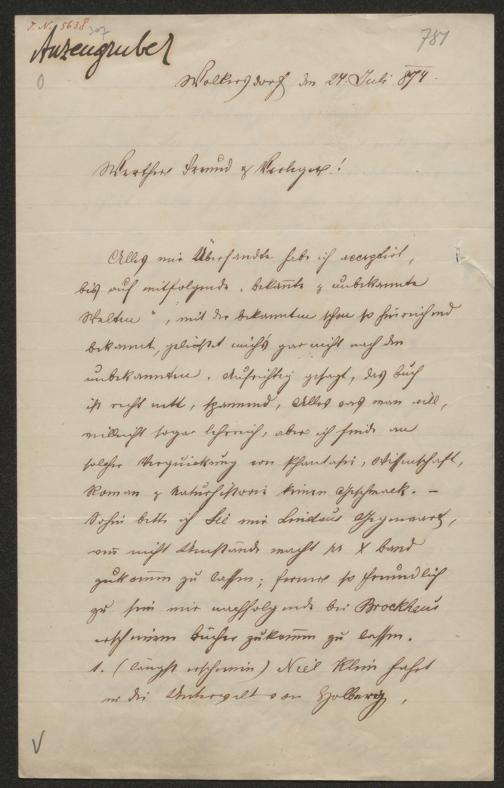 J. N. 5638
Anzengruber
781
Wolkersdorf den 24. Juli 874.
Werther Freund & Verleger!
Alles mir Übersandte habe ich acceptirt,
bis auf mitfolgende „bekannte & unbekannte
Welten“, mit der bekannten schon so hinreichend
bekannt, gelüstet mich's gar nicht nach den
unbekannten. Aufrichtig gesagt, das Buch
ist recht nett, spannend, Alles was man will,
vielleicht sogar lehrreich, aber ich finde an
solcher Verquickung von Phantasie, Wissenschaft,
Roman & Naturhistorie keinen Geschmack. –
Sohin bitte ich Sie mir Lindaus Gegenwart,
wenn nicht Umstände macht, Band
zukommen zu lassen; ferner so freundlich
zu sein mir nachfolgende bei Brockhaus
erschienenen Bücher zukommen zu lassen.
1. (längst erschienen) Niel Klim fahrt
in die Unterwelt von Holberg,